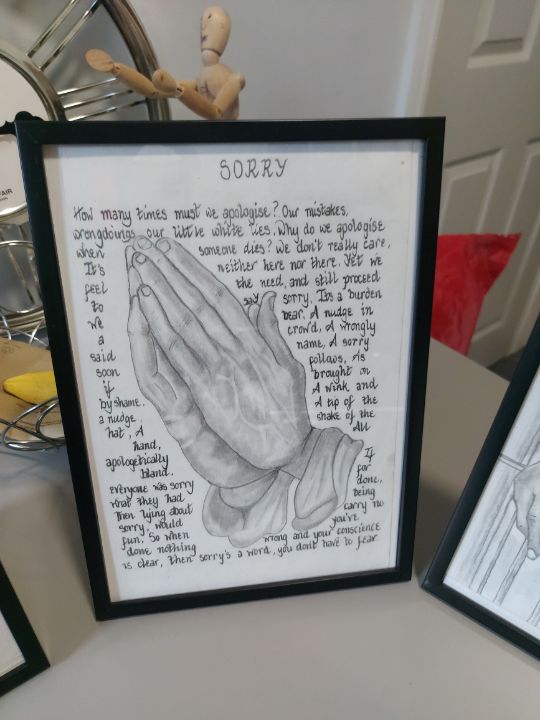 SORRY
How many times must we apologise? Our mistakes,
wrongdoings, our little white lies. Why do we apologise
when someone dies? We don't really care,
It's neither here nor there. Yet we
feel the need, and still proceed
to say sorry. Its a burden
we bear. A nudge in
a crowd, A wrongly
said name, A sorry
soon follows, As
if brought on
by shame. A wink and
a nudge. A tip of the
hat, A shake of the
hand, All
apologetically
bland. If
everyone was sorry for
what they had done,
Then lying about being
sorry, would carry no
fun. So when you've
done nothing wrong and your conscience
is clear, Then sorry's a word, you don't have to fear.